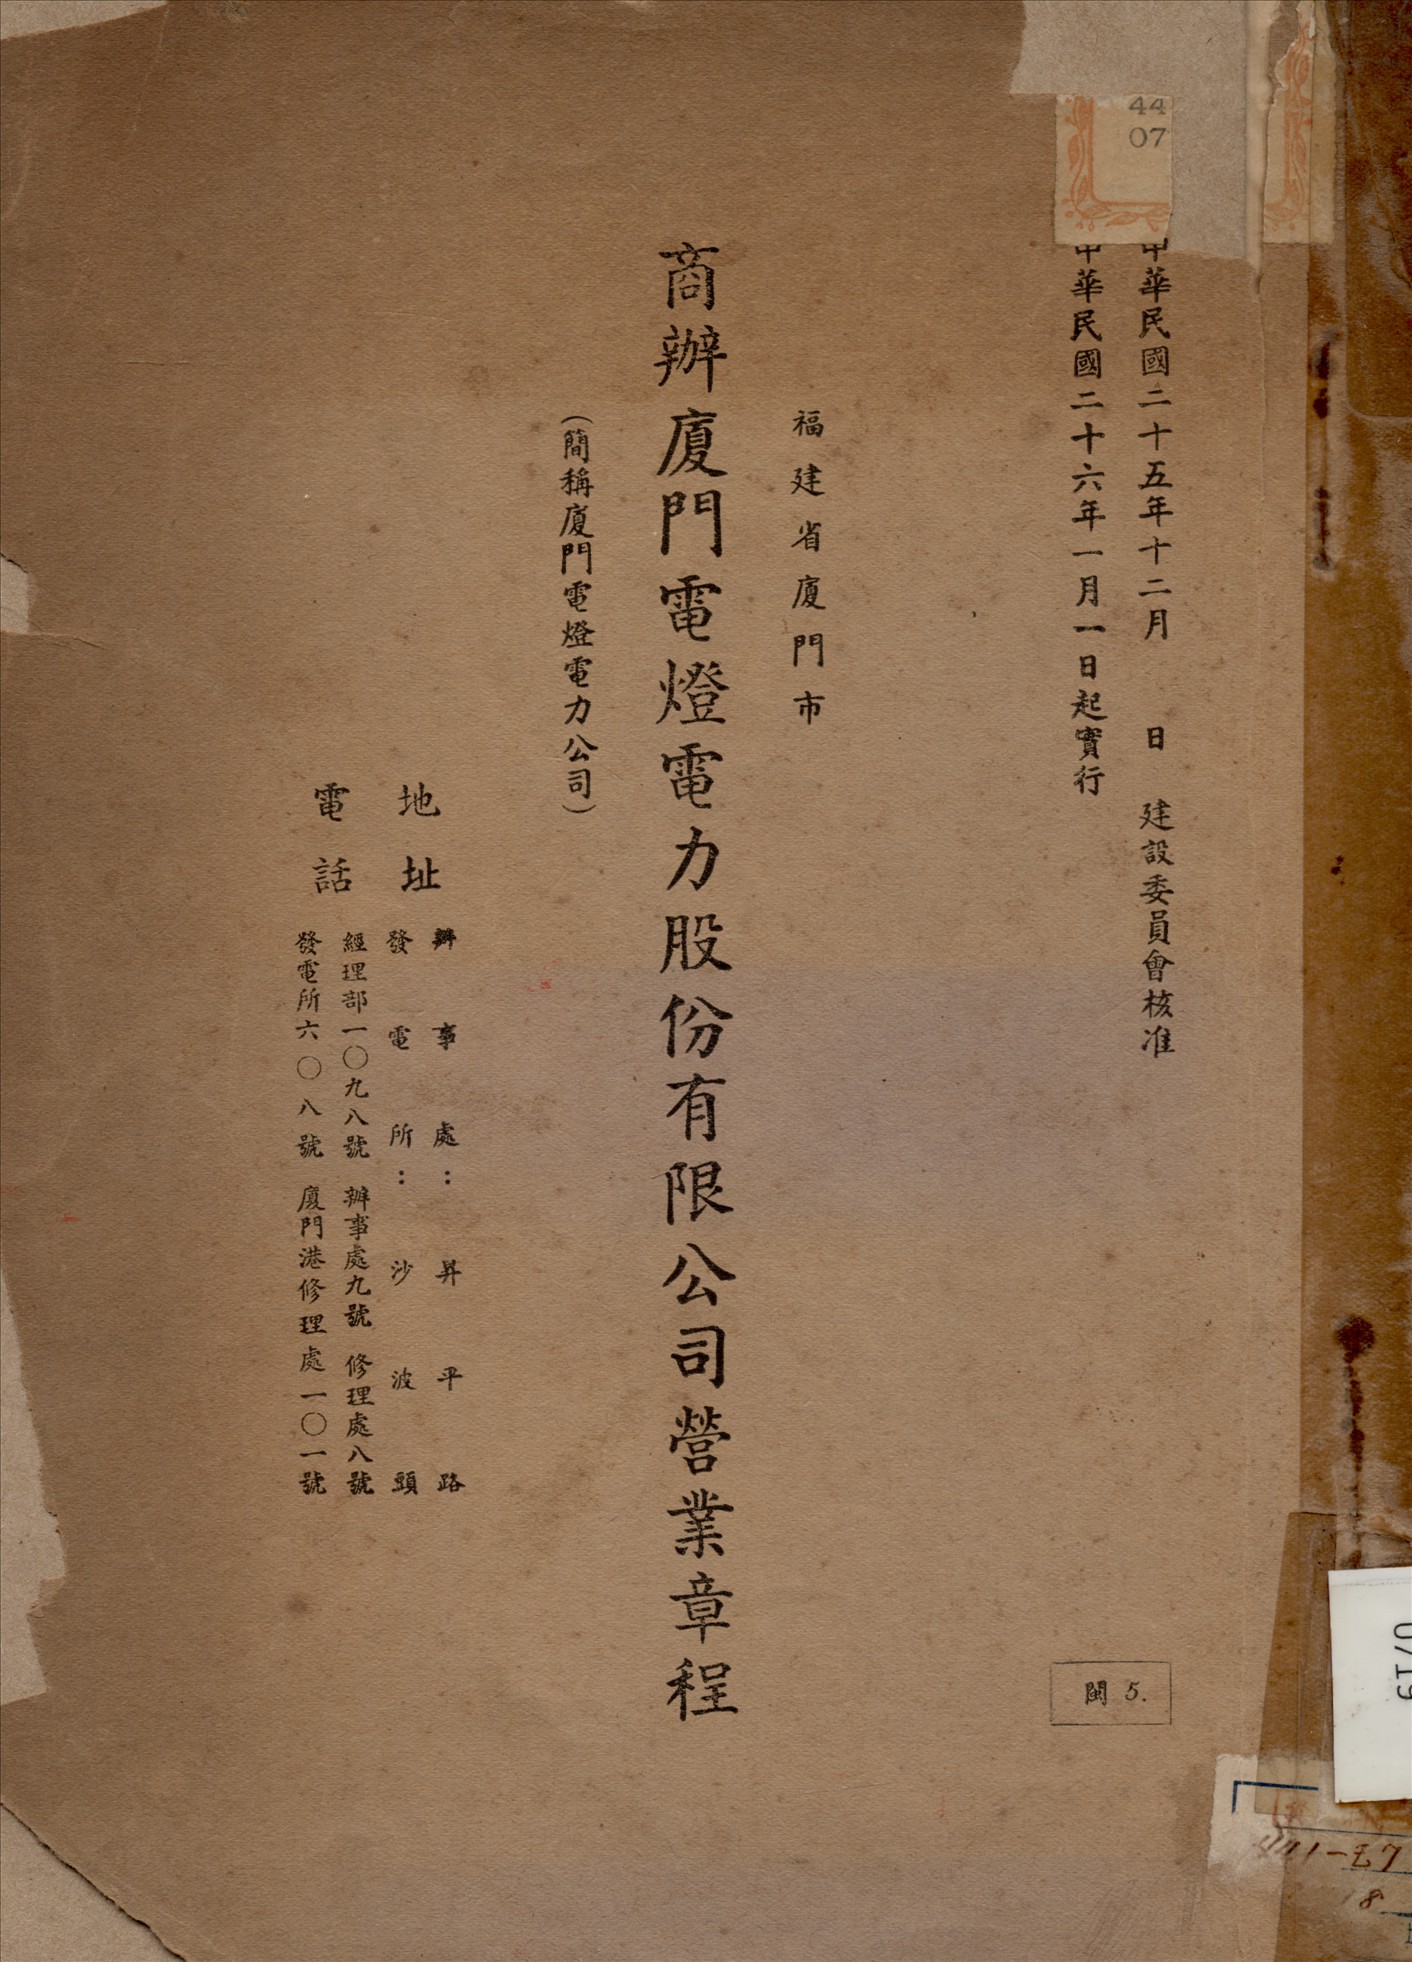 中華民國二十五年十二月　日　建設委員會核准
中華民國二十六年一月一日起實行
福建省廈門市
商辦廈門電燈電力股份有限公司營業章程
（簡稱廈門電燈電力公司）
地址
辦事處：昇平路
發電所：沙波頭
電話
經理部一〇九八號　辦事處九號　修理處八號
發電所六〇八號　廈門港修理處一〇一號
閩 5.
44
07
0719